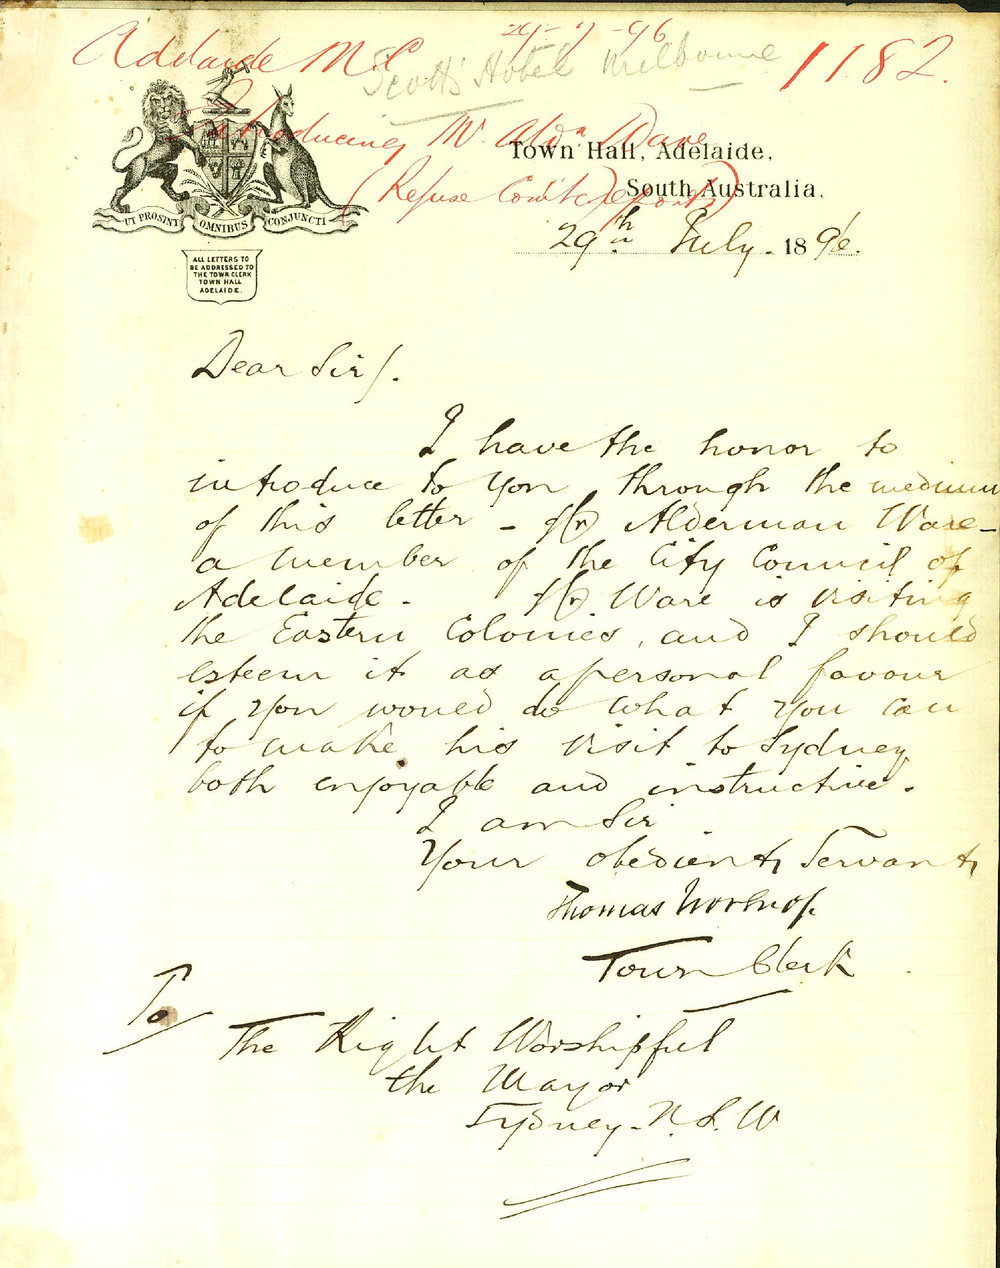 29-7-96
Adelaide M.C.
Scotts Hotel Melbourne
1182.
Introducing Mr Aldn Ware
(Refuse Comtee reports)
Town Hall, Adelaide,
South Australia,
29th July. 1896.
UT PROSINT OMNIBUS CONJUNCTI
ALL LETTERS TO
BE ADDRESSED TO
THE TOWN CLERK
TOWN HALL
ADELAIDE.
Dear Sir/.
I have the honor to
introduce to you through the medium
of this letter - Mr Alderman Ware -
a member of the City Council of
Adelaide. Mr Ware is visiting
the Eastern Colonies, and I should
esteem it as a personal favour
if you would do what you can
to make his visit to Sydney
both enjoyable and instructive.
I am Sir
Your obedient Servant
Thomas Worsnop.
Town Clerk
To
The Right Worshipful
the Mayor
Sydney. N.S.W